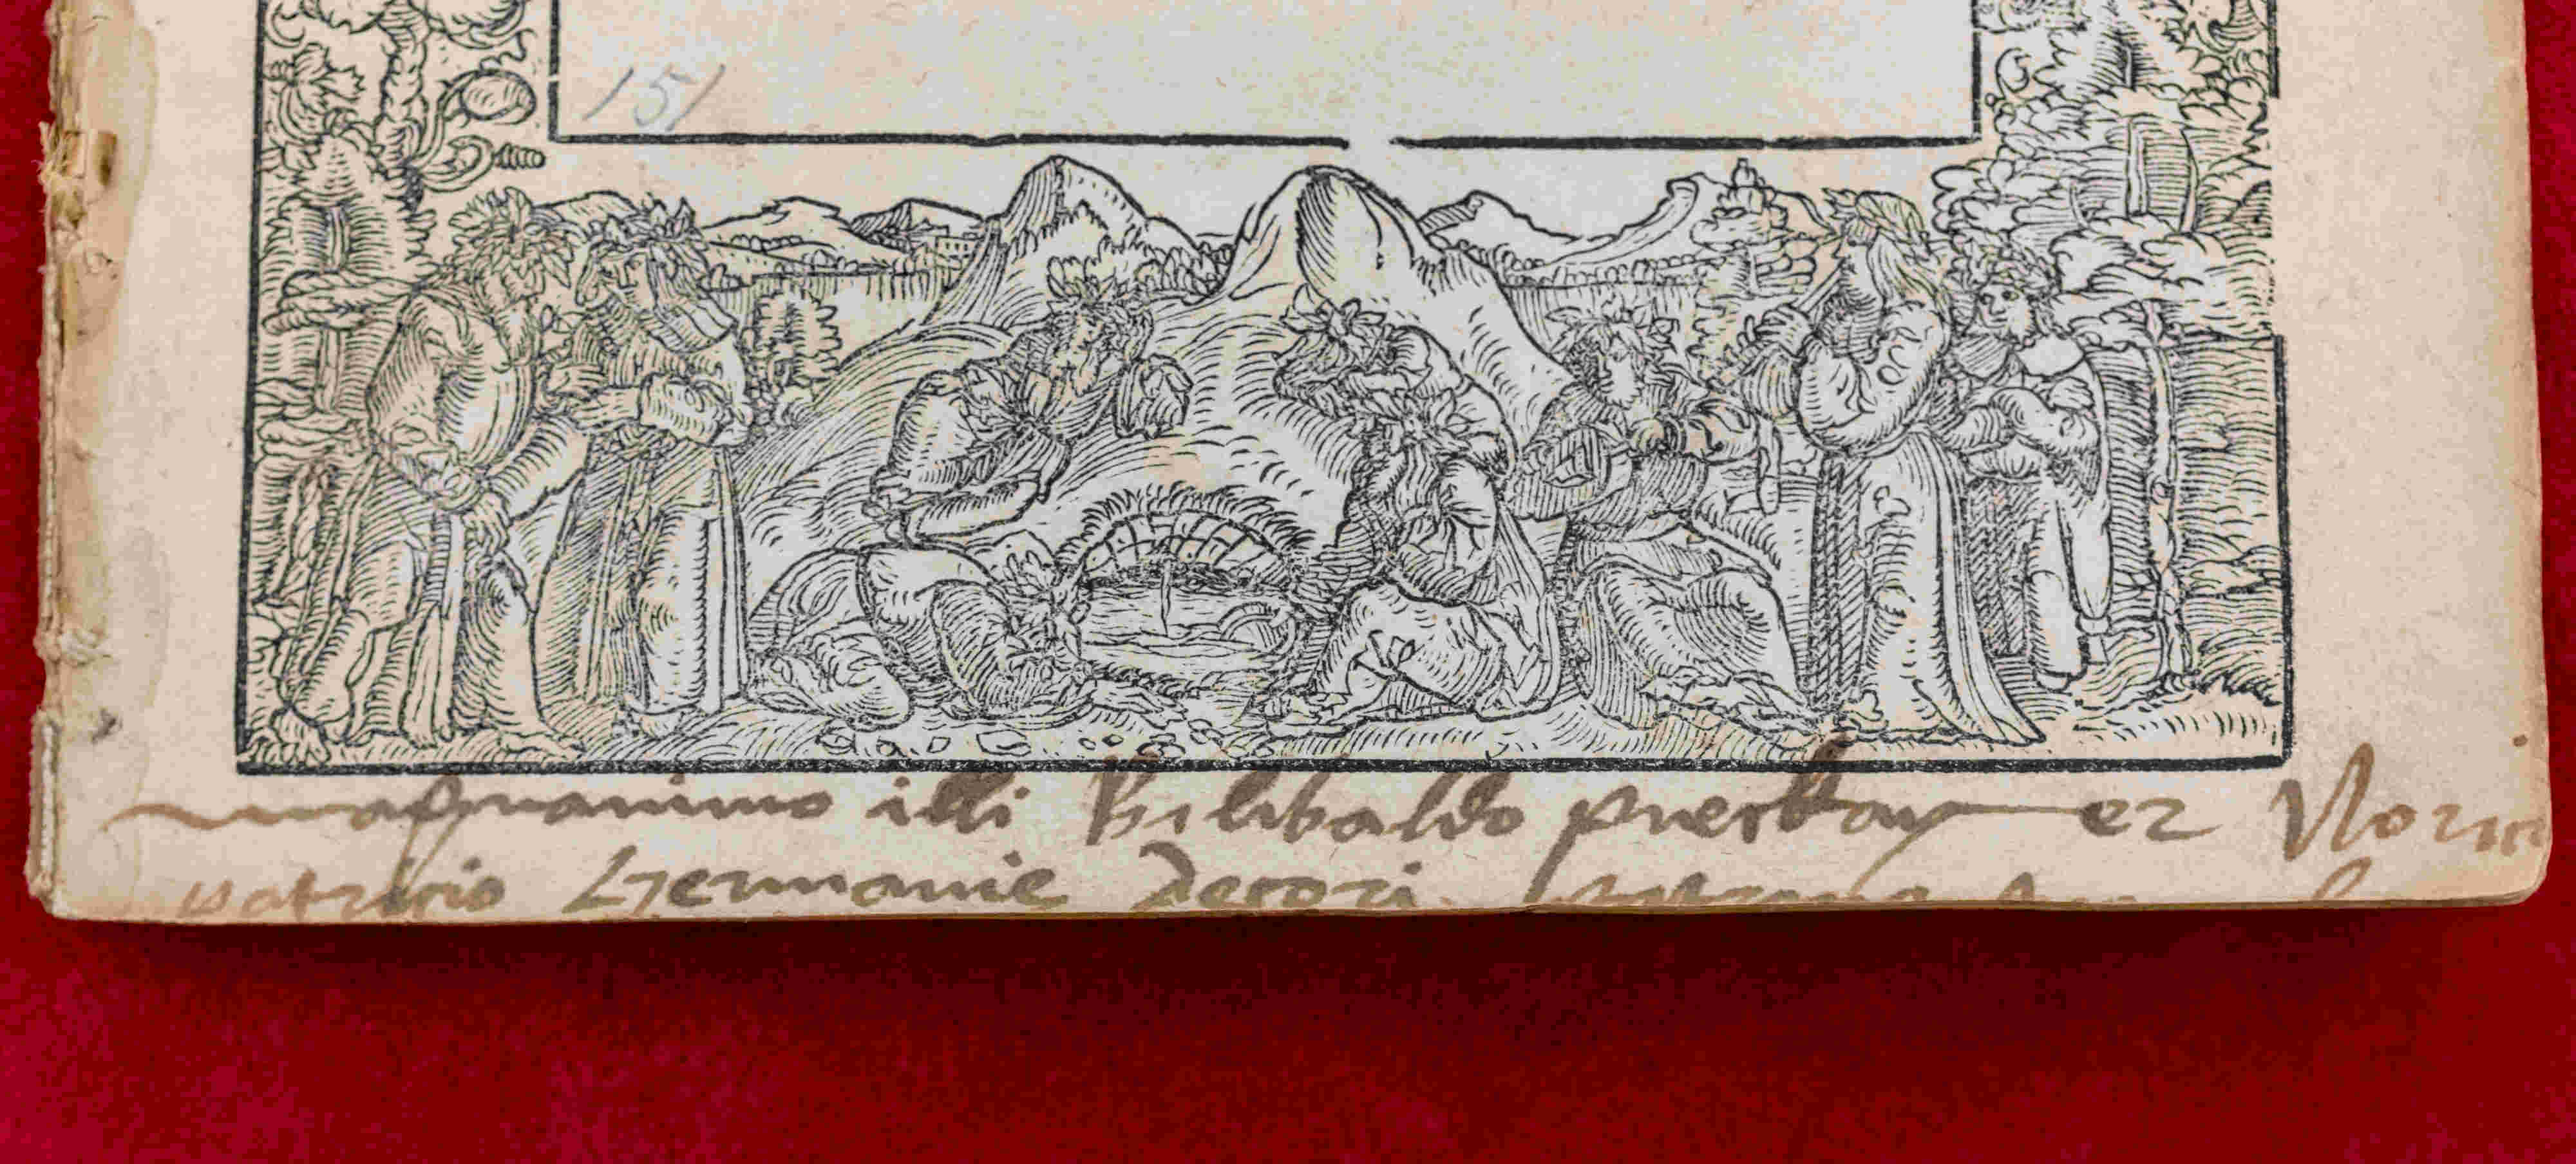 151
magnanimo illi Bilibaldo puerkaymer Noric
patricio Germanie decori